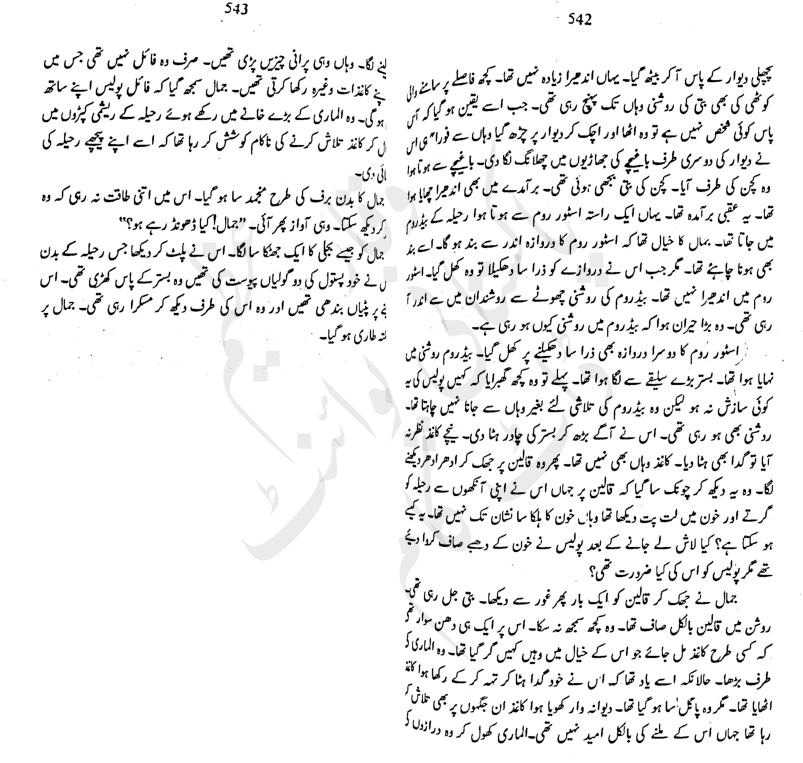 542
پچھلی دیوار کے پاس آ کر بیٹھ گیا۔ یہاں اندھیرا زیادہ نہیں تھا۔ کچھ فاصلے پر سامنے والی
کوٹھی کی بھی بتی کی روشنی وہاں تک پہنچ رہی تھی۔ جب اسے یقین ہو گیا کہ آس
پاس کوئی شخص نہیں ہے تو وہ اٹھا اور اچک کر دیوار پر چڑھ گیا وہاں سے فورا" ہی اس
نے دیوار کی دوسری طرف باغیچے کی جھاڑیوں میں چھلانگ لگا دی۔ باغیچے سے ہوتا ہوا
وہ کچن کی طرف آیا۔ کچن کی بتی بجھی ہوئی تھی۔ برآمدے میں بھی اندھیرا چھایا ہوا
تھا۔ یہ عقبی برآمدہ تھا۔ یہاں ایک راستہ اسٹور روم سے ہوتا ہوا رحیلہ کے بیڈروم
میں جاتا تھا۔ جہاں کا خیال تھا کہ اسٹور روم کا دروازہ اندر سے بند ہو گا۔ اسے بند
بھی ہونا چاہئے تھا۔ مگر جب اس نے دروازے کو ذرا سا دھکیلا تو وہ کھل گیا۔ اسٹور
روم میں اندھیرا نہیں تھا۔ بیڈروم کی روشنی چھوٹے سے روشندان میں سے اندر آ
رہی تھی۔ وہ بڑا حیران ہوا کہ بیڈروم میں روشنی کیوں ہو رہی ہے۔
اسٹور روم کا دوسرا دروازہ بھی ذرا سا دھکیلنے پر کھل گیا۔ بیڈروم روشنی میں
نہایا ہوا تھا۔ بستر بڑے سلیقے سے لگا ہوا تھا۔ پہلے تو وہ کچھ گھبرایا کہ کہیں پولیس کی یہ
کوئی سازش نہ ہو لیکن وہ بیڈروم کی تلاشی لئے بغیر وہاں سے جانا نہیں چاہتا تھا۔
روشنی بھی ہو رہی تھی۔ اس نے آگے بڑھ کر بستر کی چادر ہٹا دی۔ نیچے کاغذ نظر نہ
آیا تو گدا بھی ہٹا دیا۔ کاغذ وہاں بھی نہیں تھا۔ پھر وہ قالین پر جھک کر ادھر ادھر دیکھنے
لگا۔ وہ یہ دیکھ کر چونک سا گیا کہ قالین پر جہاں اس نے اپنی آنکھوں سے رحیلہ کو
گرتے اور خون میں لت پت دیکھا تھا وہاں خون کا ہلکا سا نشان تک نہیں تھا۔ یہ کیسے
ہو سکتا ہے؟ کیا لاش لے جانے کے بعد پولیس نے خون کے دھبے صاف کروا دیئے
تھے مگر پولیس کو اس کی کیا ضرورت تھی؟
جمال نے جھک کر قالین کو ایک بار پھر غور سے دیکھا۔ بتی جل رہی تھی۔
روشن میں قالین بالکل صاف تھا۔ وہ کچھ سمجھ نہ سکا۔ اس پر ایک ہی دھن سوار تھی
کہ کسی طرح کاغذ مل جائے جو اس کے خیال میں وہیں کہیں گر گیا تھا۔ وہ الماری کی
طرف بڑھا۔ حالانکہ اسے یاد تھا کہ اس نے خود گدا ہٹا کر تہہ کر کے رکھا ہوا کاغذ
اٹھایا تھا۔ مگر وہ پاگل سا ہو گیا تھا۔ دیوانہ وار کھویا ہوا کاغذ ان جگہوں پر بھی تلاش کر
رہا تھا جہاں اس کے ملنے کی بالکل امید نہیں تھی۔ الماری کھول کر وہ درازوں کو
543
لینے لگا۔ وہاں وہی پرانی چیزیں پڑی تھیں۔ صرف وہ فائل نہیں تھی جس میں
اپنے کاغذات وغیرہ رکھا کرتی تھیں۔ جمال سمجھ گیا کہ فائل پولیس اپنے ساتھ
ہو گی۔ وہ الماری کے بڑے خانے میں رکھے ہوئے رحیلہ کے ریشمی کپڑوں میں
کر کاغذ تلاش کرنے کی ناکام کوشش کر رہا تھا کہ اسے اپنے پیچھے رحیلہ کی
ائی دی۔
جمال کا بدن برف کی طرح منجمد سا ہو گیا۔ اس میں اتنی طاقت نہ رہی کہ وہ
کر دیکھ سکتا۔ وہی آواز پھر آئی۔ "جمال! کیا ڈھونڈ رہے ہو؟"
جمال کو جیسے بجلی کا ایک جھٹکا سا لگا۔ اس نے پلٹ کر دیکھا جس رحیلہ کے بدن
نے خود پستول کی دو گولیاں پیوست کی تھیں وہ بستر کے پاس کھڑی تھی۔ اس
پر پٹیاں بندھی تھیں اور وہ اس کی طرف دیکھ کر مسکرا رہی تھی۔ جمال پر
طاری ہو گیا۔